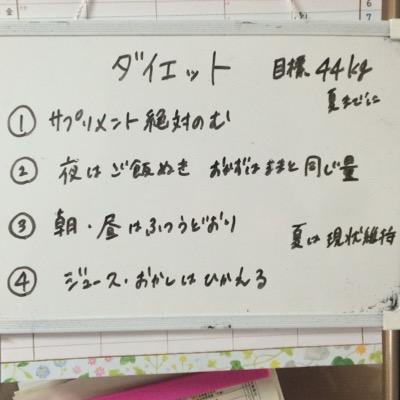 金
6
7
ダイエット
目標 44kg
夏までに
① サプリメント絶対のむ
② 夜はご飯ぬき おかずはままと同じ量
③ 朝・昼はふつうどおり
夏は現状維持
④ ジュース・おかしはひかえる